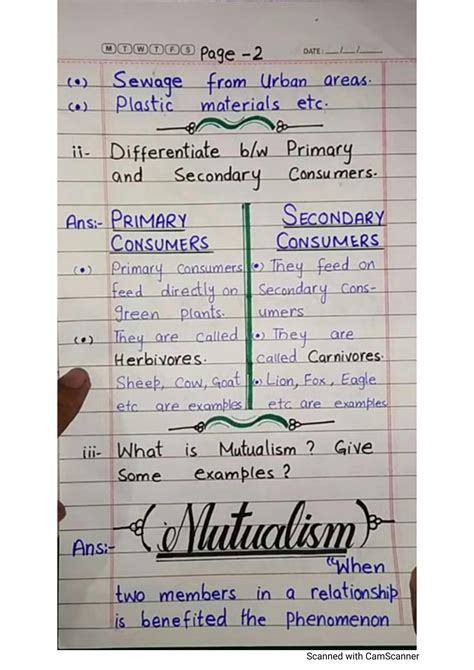 M T W T F S Page - 2 DATE: __/__/__
(•) Sewage from Urban areas.
(•) Plastic materials etc.
ii- Differentiate b/w Primary
and Secondary Consumers.
Ans:- PRIMARY
CONSUMERS
(•) Primary Consumers
feed directly on
green plants.
(•) They are called
Herbivores.
Sheep, Cow, Goat
etc are examples
SECONDARY
CONSUMERS
(•) They feed on
Secondary Cons-
umers
(•) They are
called Carnivores.
(•) Lion, Fox, Eagle
etc are examples
iii- What is Mutualism? Give
Some examples?
Ans:- Mutualism
"When
two members in a relationship
is benefited the Phenomenon
Scanned with CamScanner